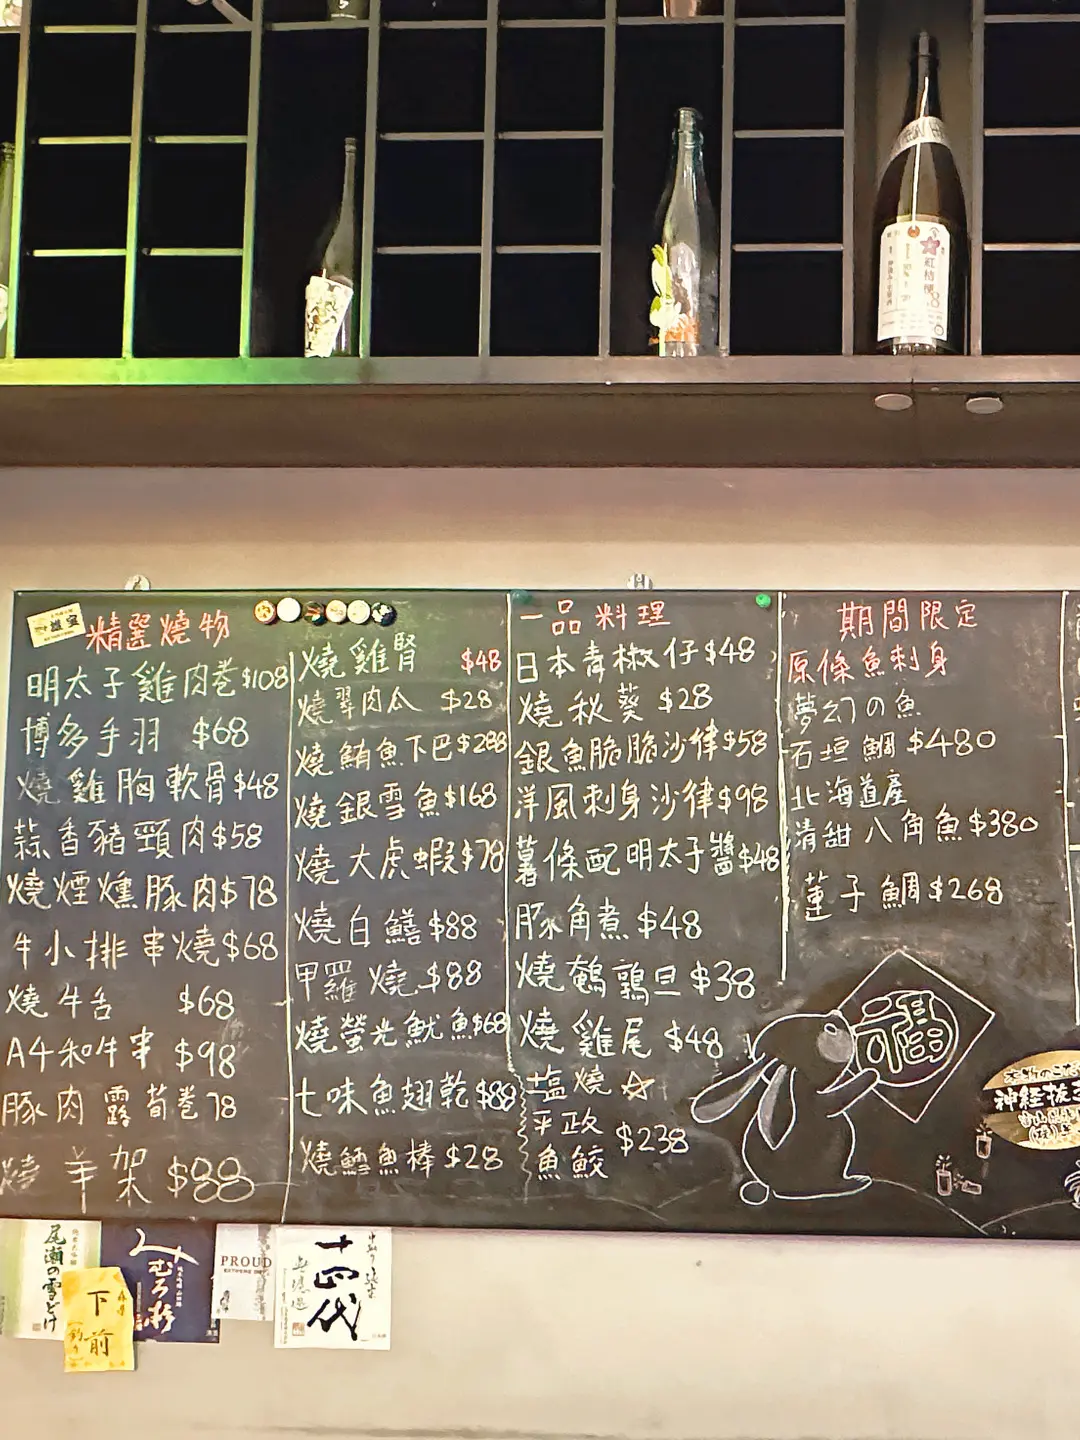 紅桔梗
精選燒物
明太子雞肉卷$108
博多手羽 $68
燒雞胸軟骨$48
蒜香豬頸肉$58
燒煙燻豚肉$78
牛小排串燒$68
燒牛舌 $68
A4和牛串 $98
豚肉露荀卷78
燒羊架 $88
燒雞腎 $48
燒翠肉瓜 $28
燒鮪魚下巴$288
燒銀雪魚$168
燒大虎蝦$78
燒白鱔$88
甲羅燒$88
燒螢光魷魚$68
七味魚翅乾$88
燒鱈魚棒$28
一品料理
日本青椒仔$48
燒秋葵$28
銀魚脆脆沙律$58
洋風刺身沙律$98
薯條配明太子醬$48
豚角煮$48
燒鵪鶉旦$38
燒雞尾$48
塩燒☆
平政
魚鮫 $238
期間限定
原條魚刺身
夢幻の魚
石垣鯛$480
北海道産
清甜八角魚$380
蓮子鯛$268
福
神経抜
尾瀬の雪どけ
下前
みむろ杉
PROUD
十四代